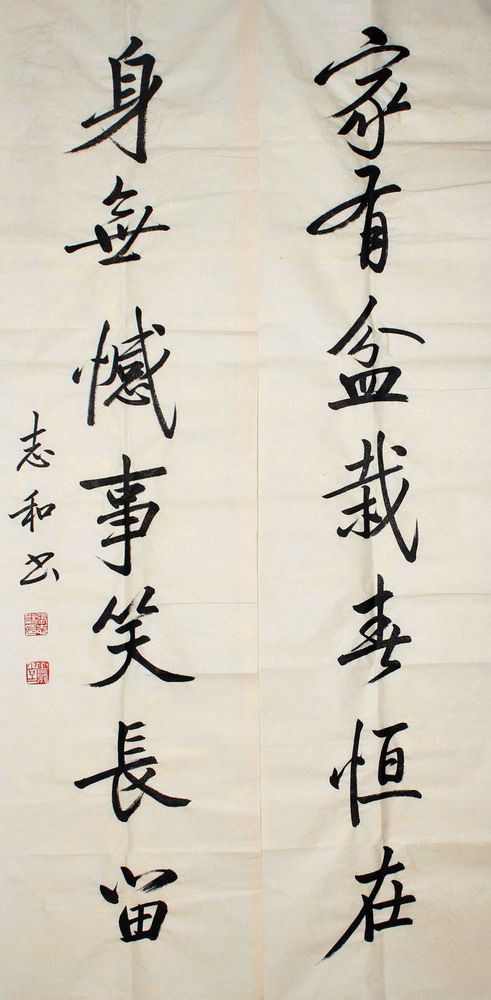 家有盆栽春恒在
身無憾事笑長留
志和书